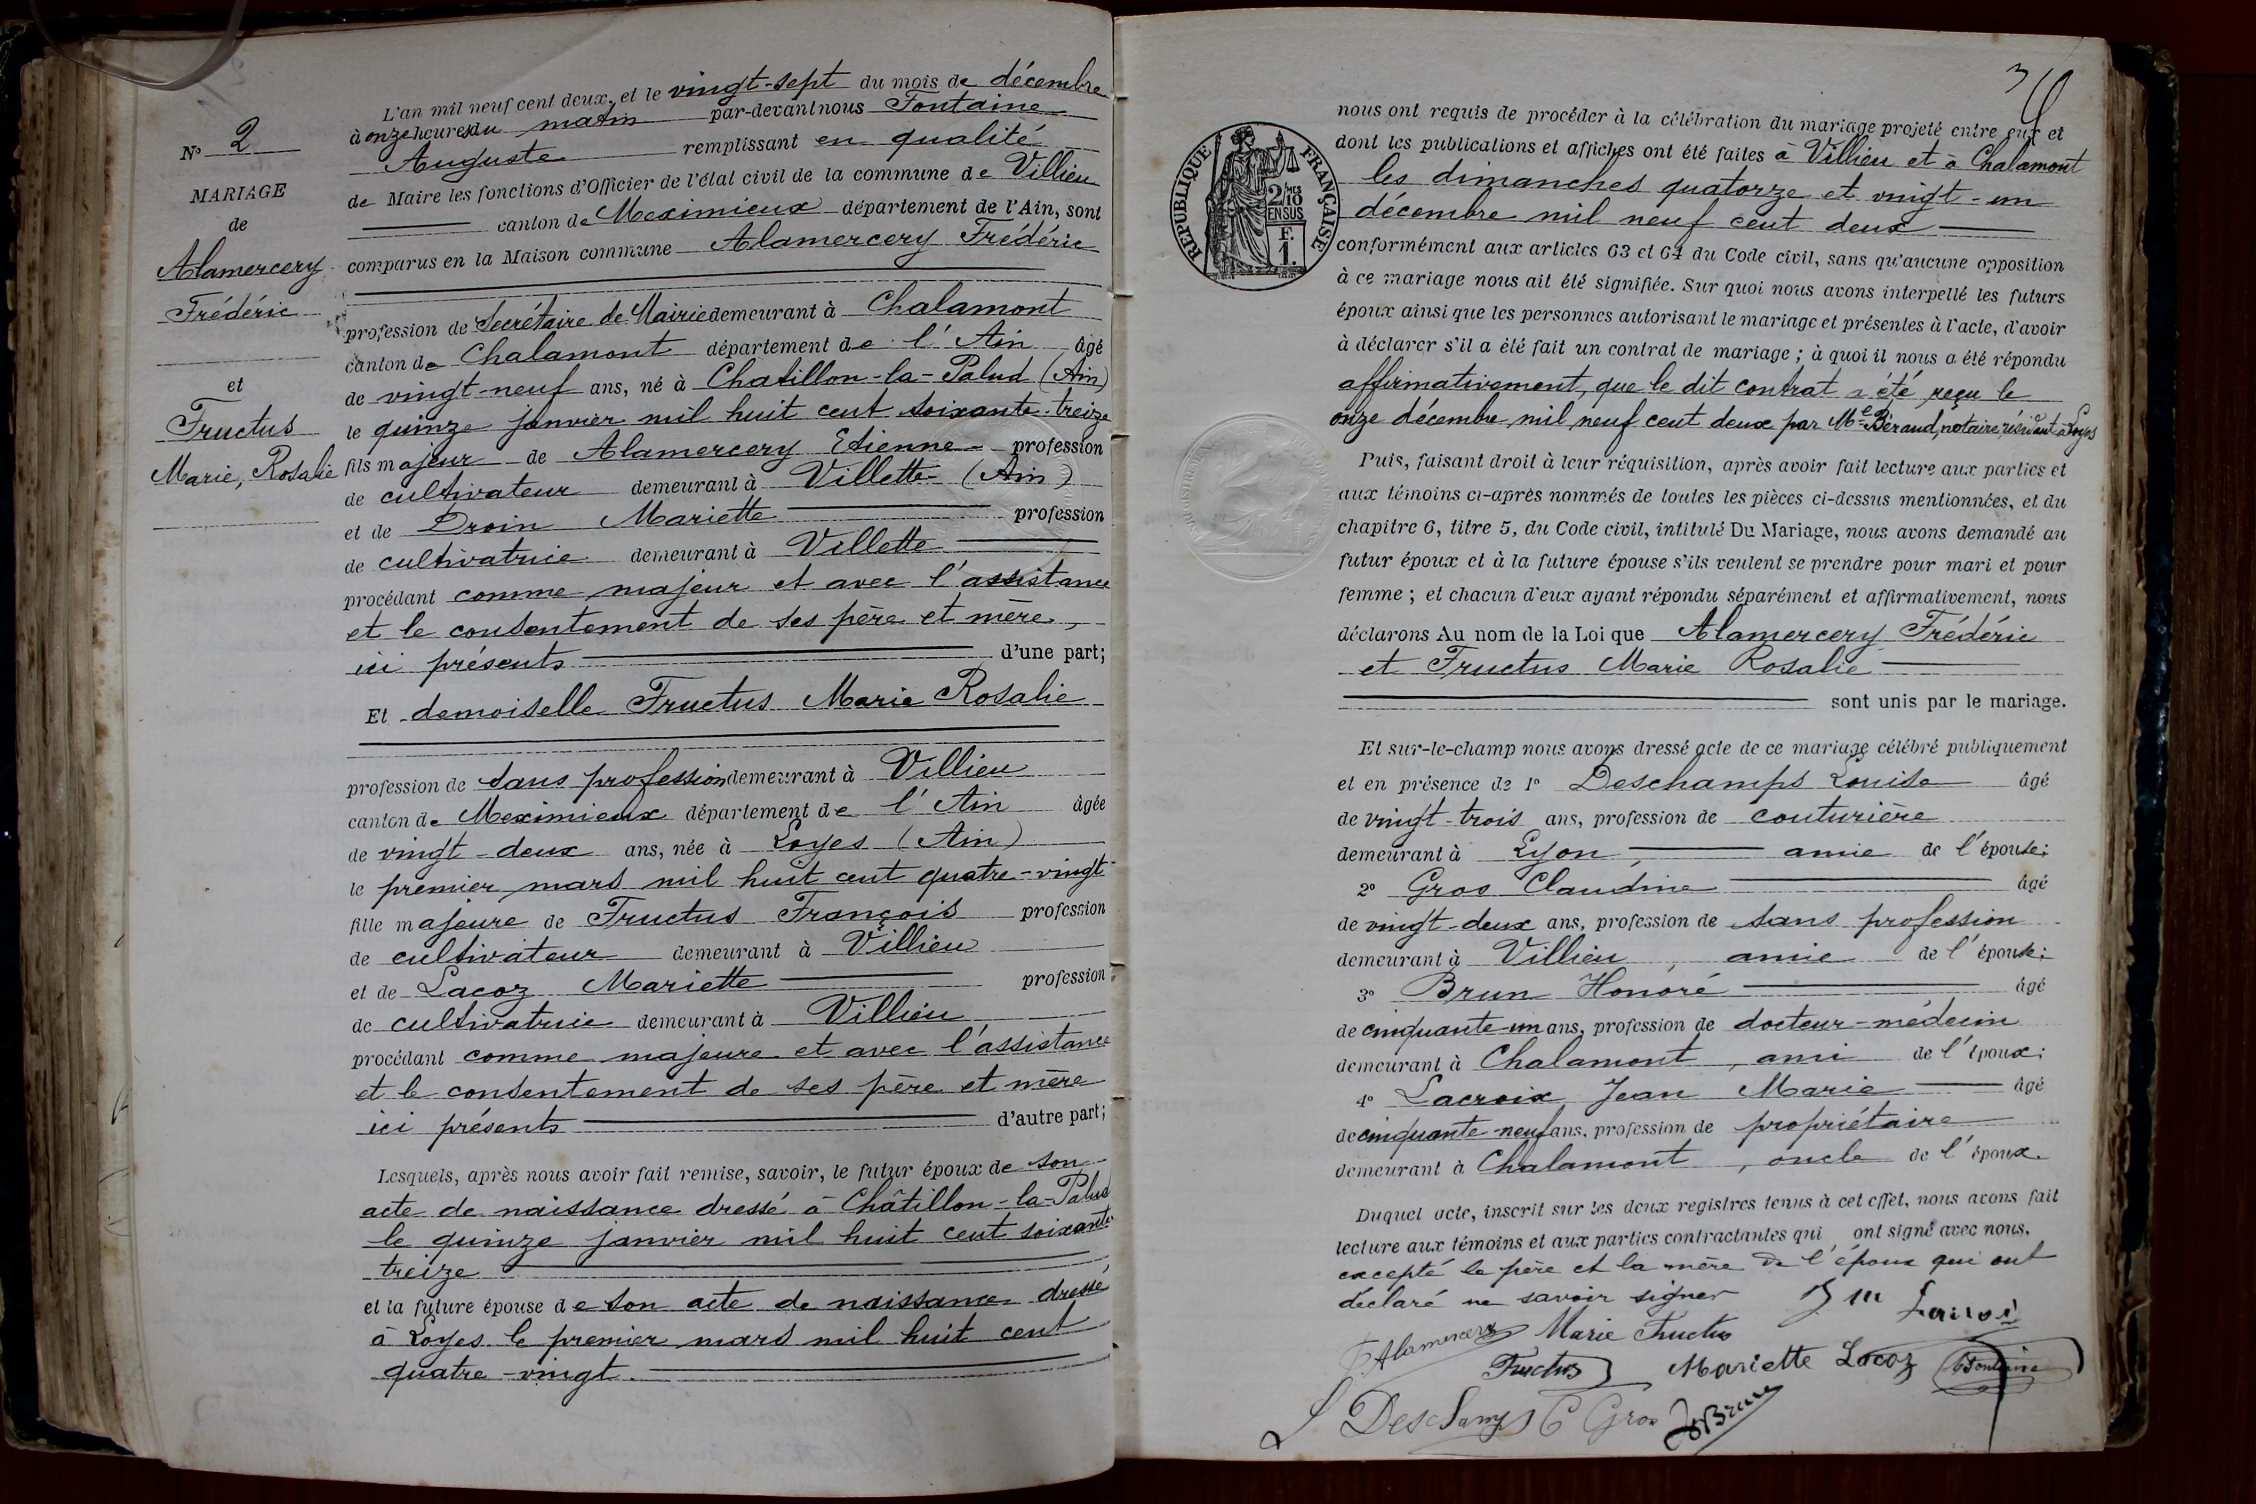 L'an mil neuf cent deux, et le vingt-sept du mois de décembre
à onze heures du matin par-devant nous Fontaine
Auguste remplissant en qualité
de Maire les fonctions d'Officier de l'état civil de la commune de Villieu
canton de Meximieux département de l'Ain, sont
comparus en la Maison commune Alamercery Frédéric
profession de Secrétaire de Mairie demeurant à Chalamont
canton de Chalamont département de l'Ain âgé
de vingt-neuf ans, né à Chatillon-la-Palud (Ain)
le quinze janvier mil huit cent soixante-treize
fils majeur de Alamercery Etienne profession
de cultivateur demeurant à Villette (Ain)
et de Droin Mariette profession
de cultivatrice demeurant à Villette
procédant comme majeur et avec l'assistance
et le consentement de ses père et mère,
ici présents d'une part;
Et demoiselle Fructus Marie Rosalie
profession de sans profession demeurant à Villieu
canton de Meximieux département de l'Ain âgée
de vingt-deux ans, née à Loyes (Ain)
le premier mars mil huit cent quatre-vingt
fille majeure de Fructus François profession
de cultivateur demeurant à Villieu
et de Lacoz Mariette profession
de cultivatrice demeurant à Villieu
procédant comme majeure et avec l'assistance
et le consentement de ses père et mère
ici présents d'autre part;
Lesquels, après nous avoir fait remise, savoir, le futur époux de son
acte de naissance dressé à Châtillon-la-Palud
le quinze janvier mil huit cent soixante
treize
et la future épouse de son acte de naissance dressé
à Loyes le premier mars mil huit cent
quatre-vingt
No 2
MARIAGE
de
Alamercery
Frédéric
et
Fructus
Marie, Rosalie
3
nous ont requis de procéder à la célébration du mariage projeté entre eux et
dont les publications et affiches ont été faites à Villieu et à Chalamont
les dimanches quatorze et vingt-un
décembre mil neuf cent deux
conformément aux articles 63 et 64 du Code civil, sans qu'aucune opposition
à ce mariage nous ait été signifiée. Sur quoi nous avons interpellé les futurs
époux ainsi que les personnes autorisant le mariage et présentes à l'acte, d'avoir
à déclarer s'il a été fait un contrat de mariage ; à quoi il nous a été répondu
affirmativement, que le dit contrat a été reçu le
onze décembre mil neuf cent deux par Me Béraud, notaire, résidant à Loyes
Puis, faisant droit à leur réquisition, après avoir fait lecture aux parties et
aux témoins ci-après nommés de toutes les pièces ci-dessus mentionnées, et du
chapitre 6, titre 5, du Code civil, intitulé Du Mariage, nous avons demandé au
futur époux et à la future épouse s'ils veulent se prendre pour mari et pour
femme ; et chacun d'eux ayant répondu séparément et affirmativement, nous
déclarons Au nom de la Loi que Alamercery Frédéric
et Fructus Marie Rosalie
sont unis par le mariage.
Et sur-le-champ nous avons dressé acte de ce mariage célébré publiquement
et en présence de 1° Deschamps Louise âgé
de vingt-trois ans, profession de couturière
demeurant à Lyon, amie de l'épouse;
2° Gros Claudine âgé
de vingt-deux ans, profession de sans profession
demeurant à Villieu, amie de l'épouse;
3° Brun Honoré âgé
de cinquante-un ans, profession de docteur-médecin
demeurant à Chalamont, ami de l'époux;
4° Lacroix Jean Marie âgé
de cinquante-neuf ans, profession de propriétaire
demeurant à Chalamont, oncle de l'époux.
Duquel acte, inscrit sur les deux registres tenus à cet effet, nous avons fait
lecture aux témoins et aux parties contractantes qui ont signé avec nous.
excepté le père et la mère de l'époux qui ont
déclaré ne savoir signer
Alamercery Marie Fructus
Fructus Mariette Lacoz Fontaine
L Deschamps C Gros Brun
RÉPUBLIQUE FRANÇAISE
2/10MES
EN SUS
F.
1.